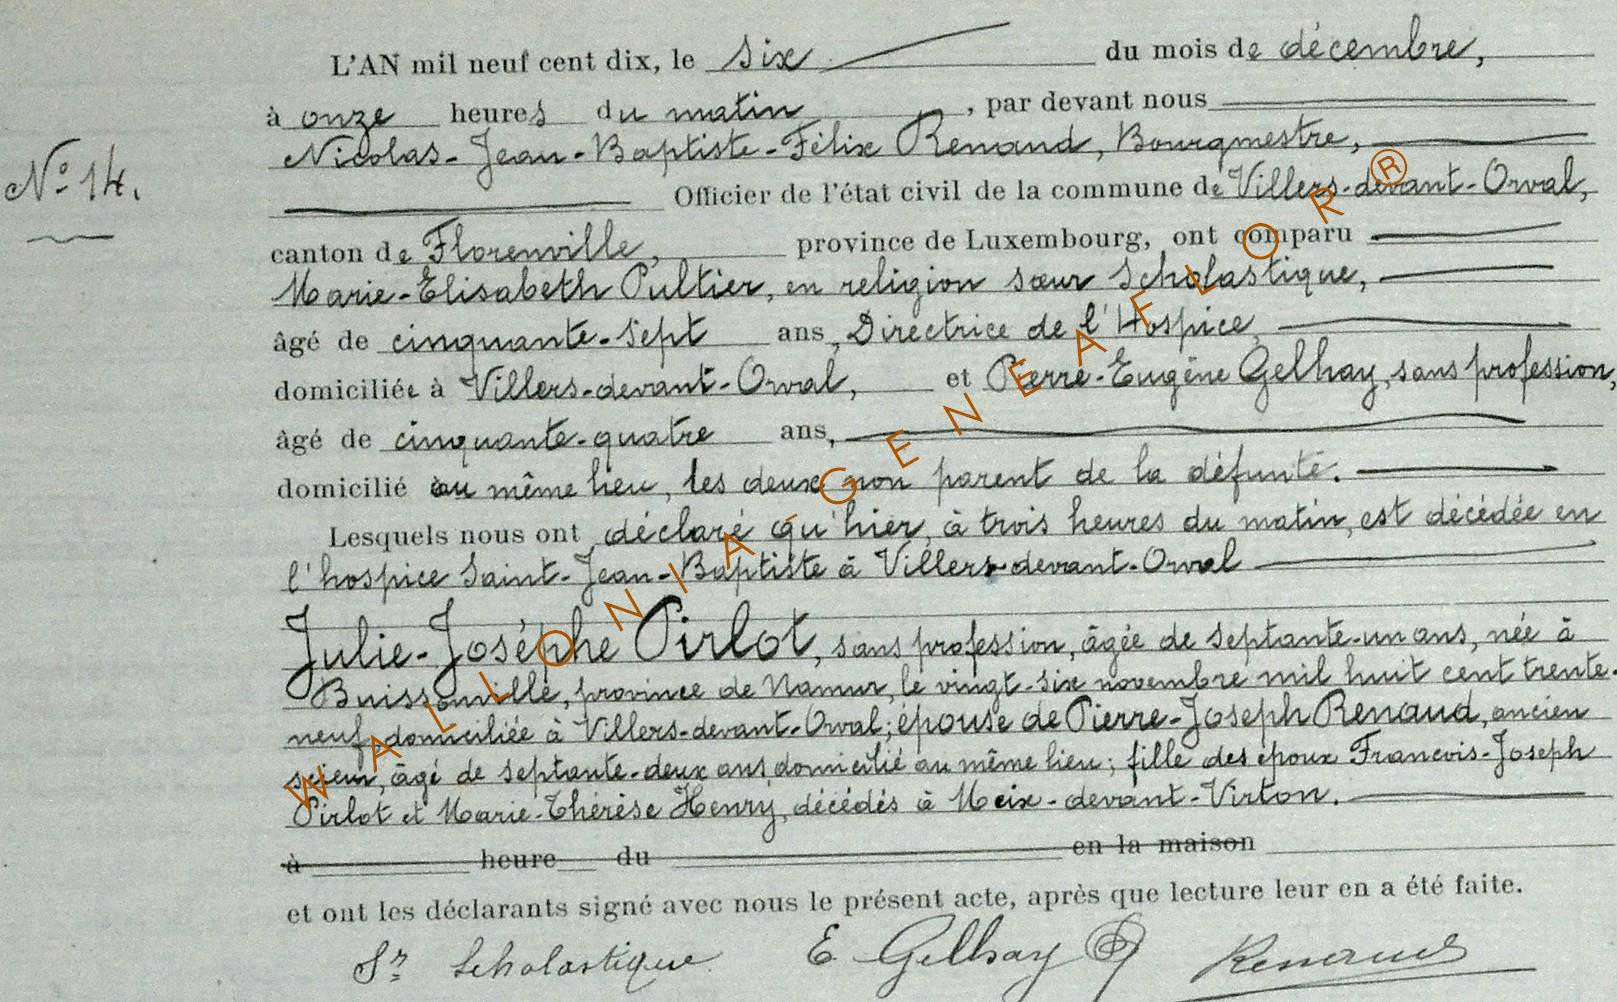 L'AN mil neuf cent dix, le six du mois de décembre,
à onze heures du matin, par devant nous
Nicolas-Jean-Baptiste-Félix Renaud, Bourgmestre,
N° 14.
Officier de l'état civil de la commune de Villers-devant-Orval,
canton de Florenville, province de Luxembourg, ont comparu
Marie-Elisabeth Pultier, en religion sœur Scholastique,
âgé de cinquante-sept ans, Directrice de l'Hospice,
domiciliée à Villers-devant-Orval, et Pierre-Eugène Gelhay, sans profession,
âgé de cinquante-quatre ans,
domicilié au même lieu, les deux non parent de la défunte.
Lesquels nous ont déclaré qu'hier, à trois heures du matin, est décédée en
l'hospice Saint-Jean-Baptiste à Villers-devant-Orval
Julie-Joséphe Pirlot, sans profession, âgée de septante-un ans, née à
Buissonville, province de Namur, le vingt-six novembre mil huit cent trente-
neuf, domiciliée à Villers-devant-Orval; épouse de Pierre-Joseph Renaud, ancien
scieur, âgé de septante-deux ans domicilié au même lieu; fille des époux Francois-Joseph
Pirlot et Marie-Thérèse Henry, décédés à Meix-devant-Virton.
à heure du en la maison
et ont les déclarants signé avec nous le présent acte, après que lecture leur en a été faite.
Sr Scholastique E. Gelhay Renaud
WALLONIA-GENEAFLOR®